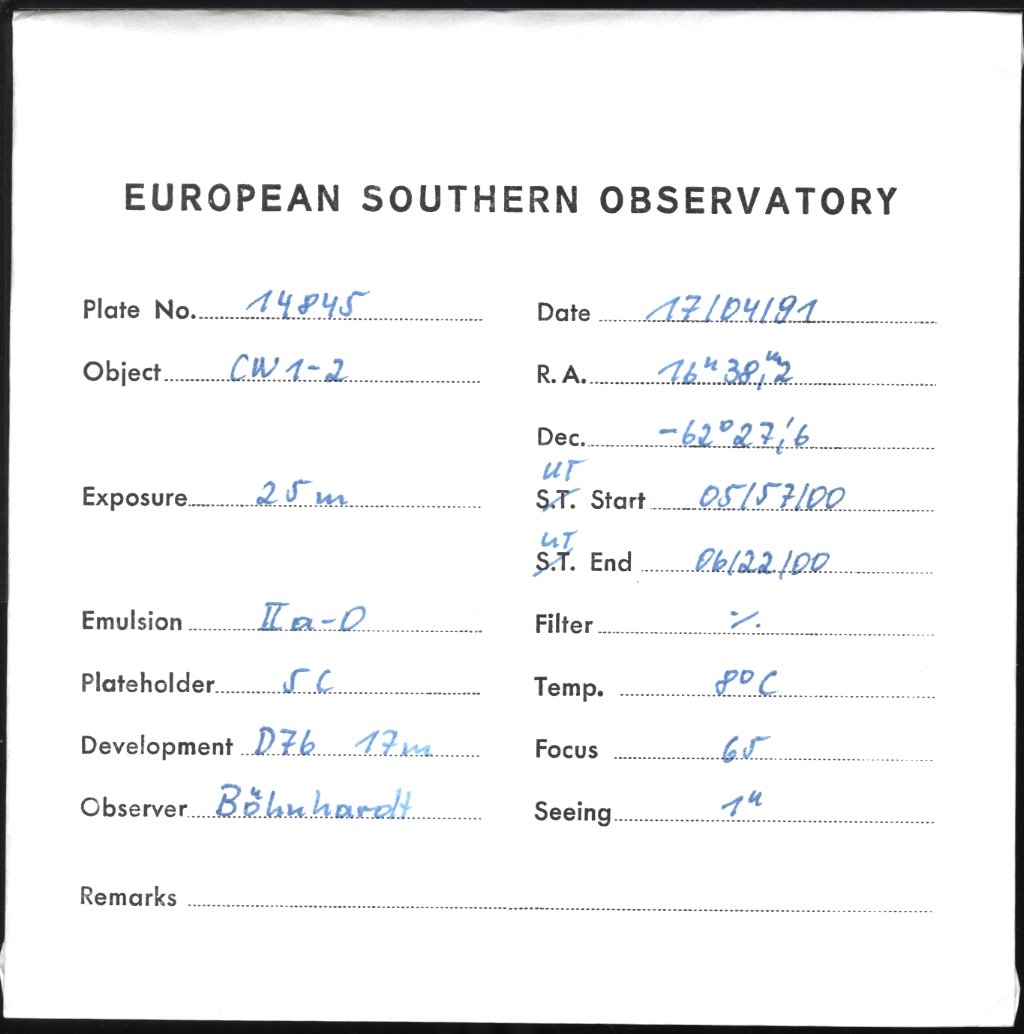 EUROPEAN SOUTHERN OBSERVATORY
Plate No. 14845 Date 17/04/91
Object CW1-2 R.A. 16ʰ38,ᵐ2
Dec. -62°27,'6
UT
Exposure 25m S.T. Start 05/57/00
UT
S.T. End 06/22/00
Emulsion IIa-O Filter ·/.
Plateholder 5C Temp. 8°C
Development D76 17m Focus 65
Observer Böhnhardt Seeing 1"
Remarks